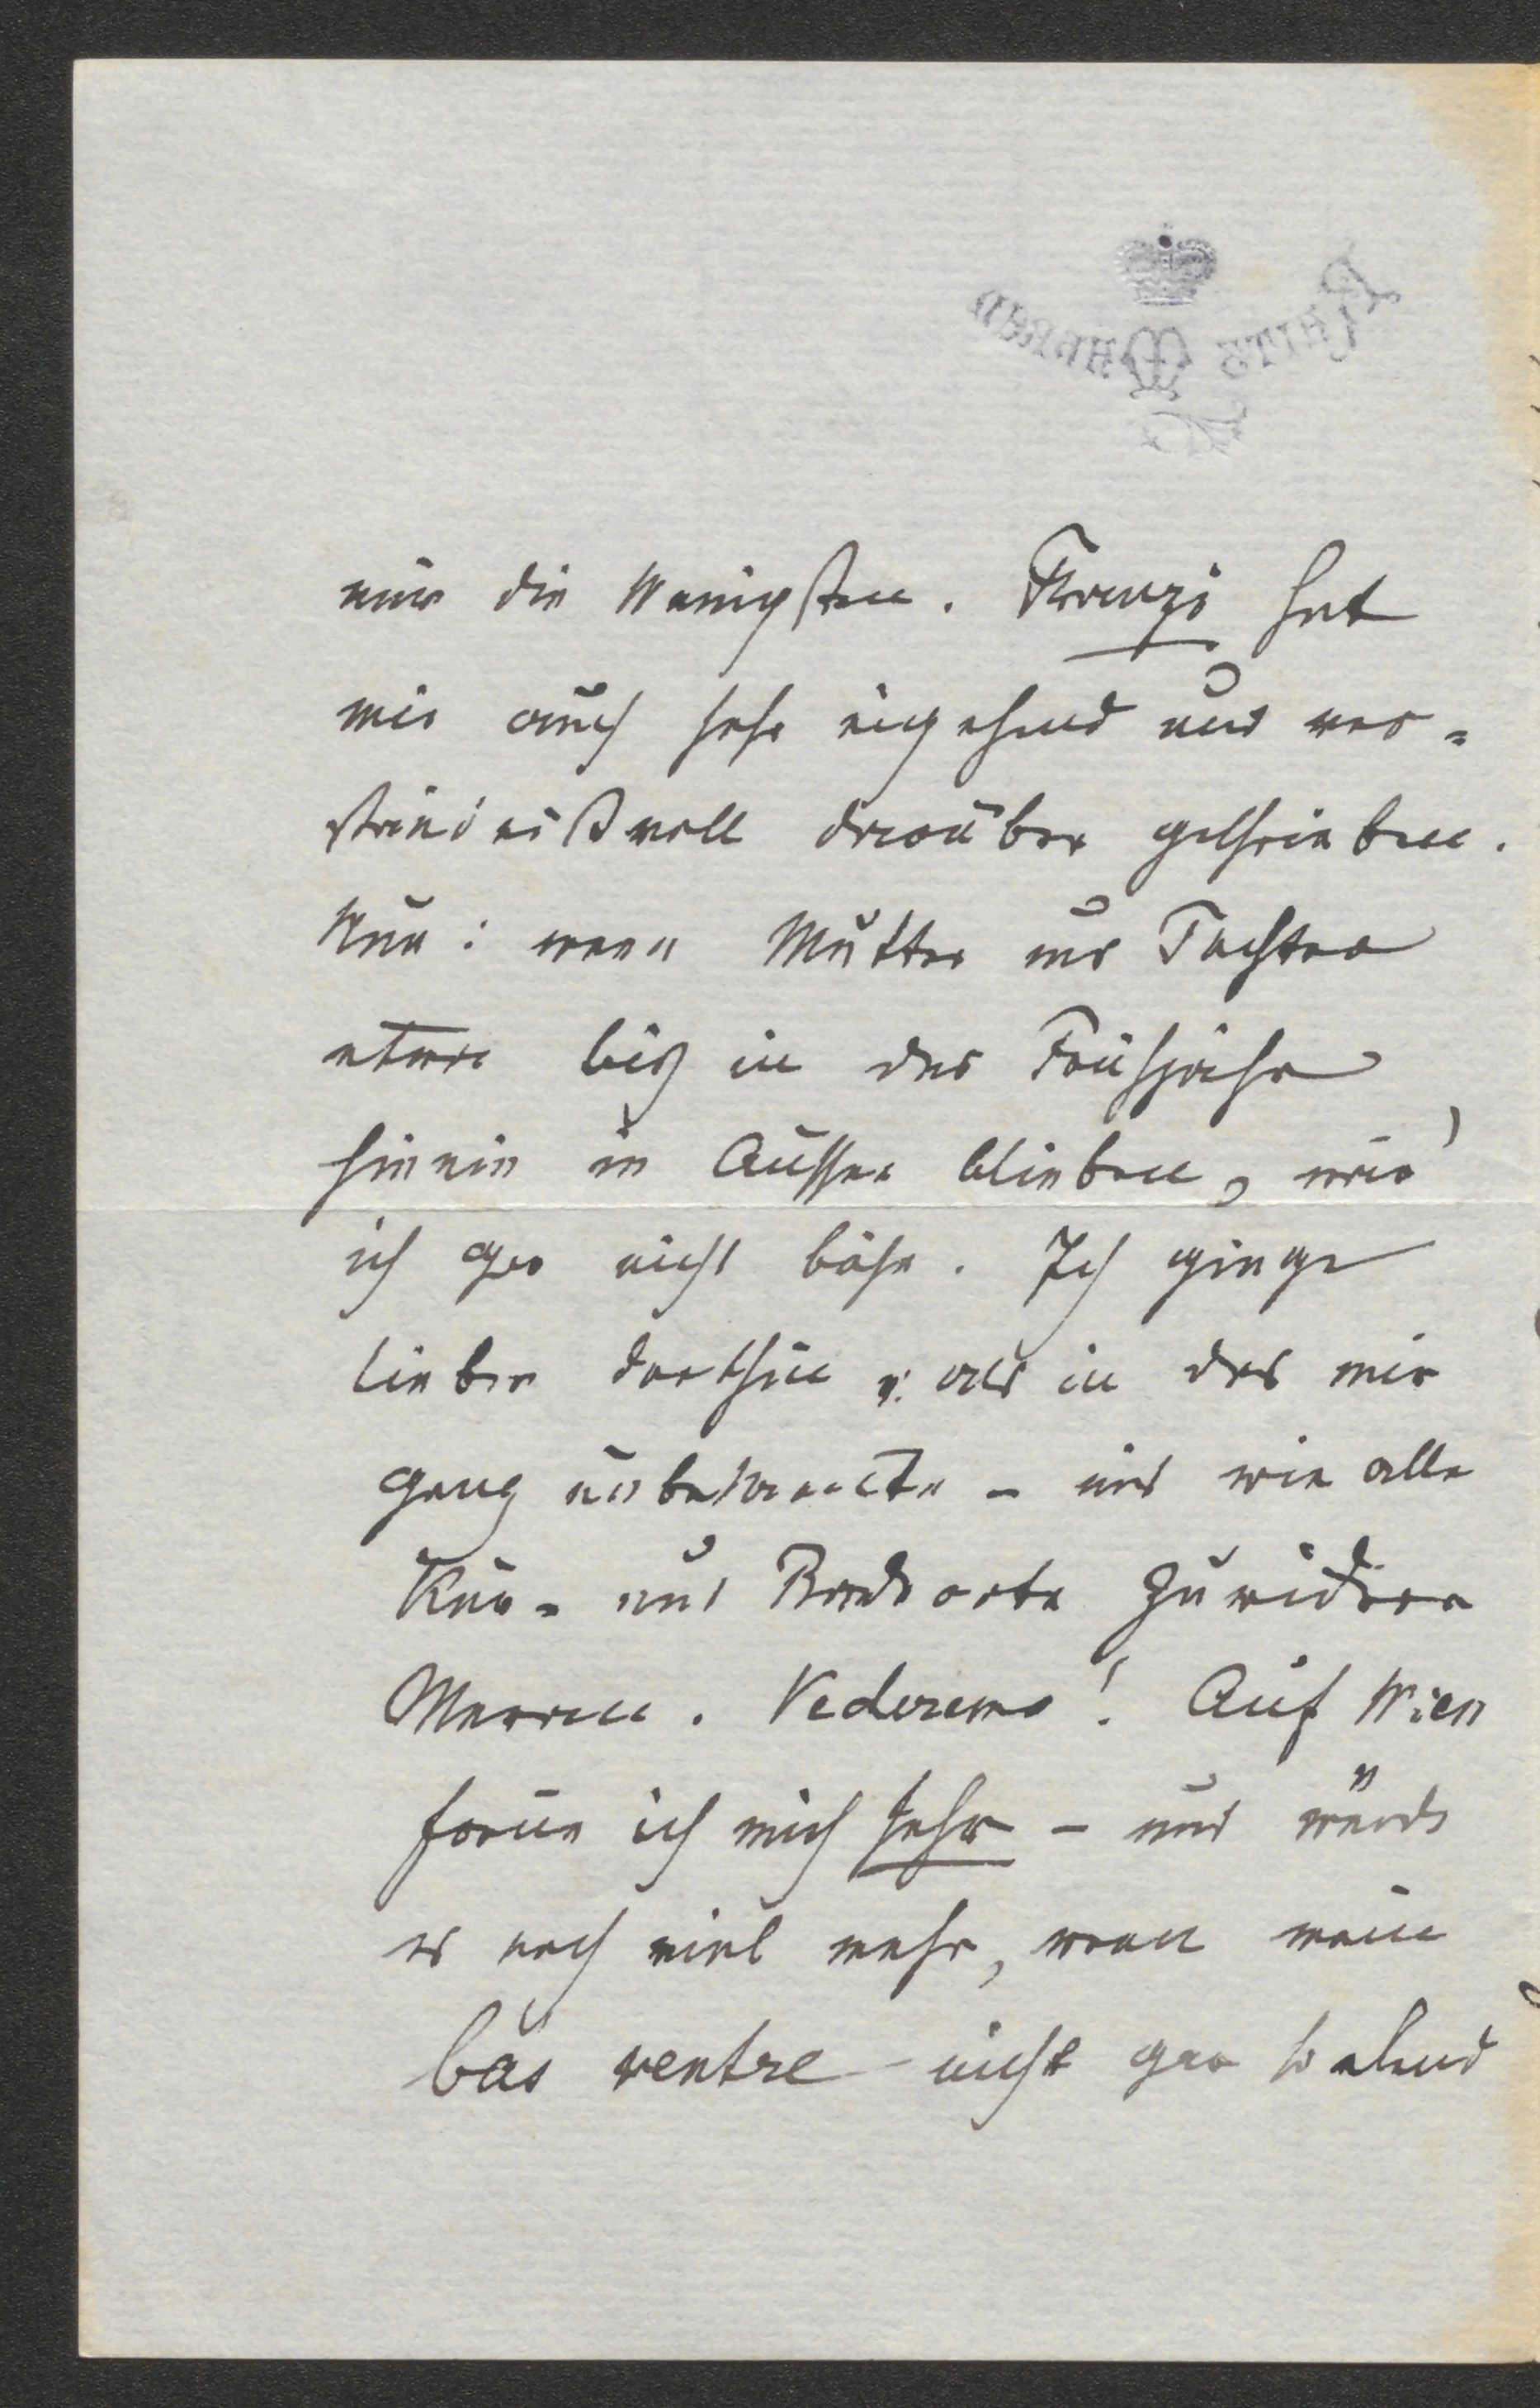 nur die Wenigsten. Franzi hat
mir auch sehr eingehend und ver-
ständnißvoll darüber geschrieben.
Nun: wenn Mutter und Tochter
etwa bis in das Frühjahr
hinein in Aussee blieben, wär'
ich gar nicht böse. Ich ginge
lieber dorthin als in das mir
ganz unbekannte – und wie alle
Kur- und Badeorte zuwidere
Meran. Vederemo! Auf Wien
freue ich mich sehr – und würde
es noch viel mehr, wenn mein
bas ventre nicht gar so elend